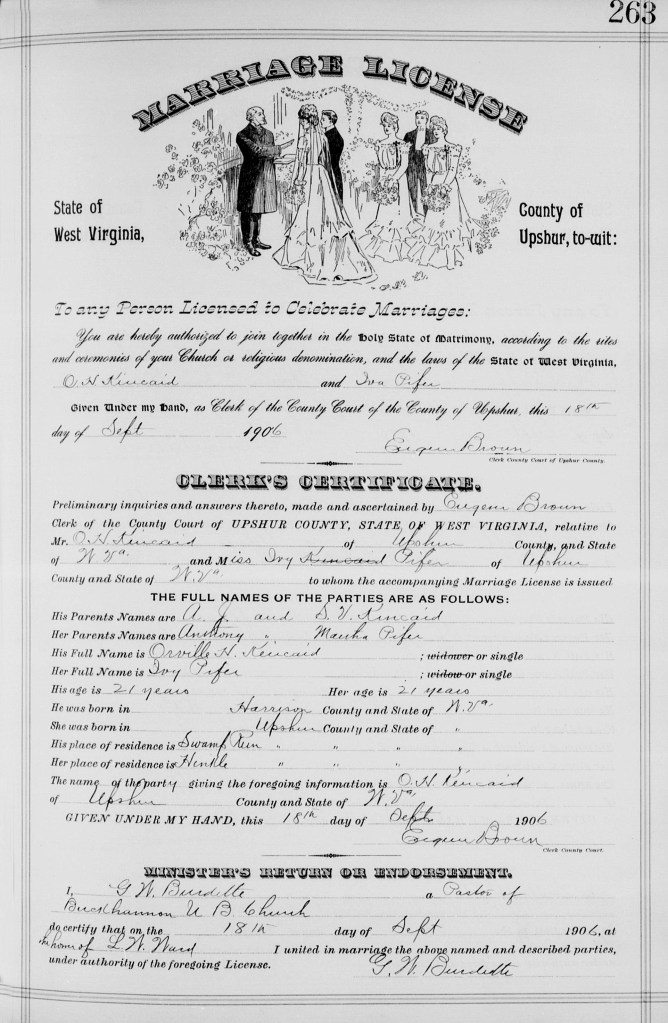 263
MARRIAGE LICENSE
State of
West Virginia,
County of
Upshur, to-wit:
To any Person Licensed to Celebrate Marriages:
You are hereby authorized to join together in the Holy State of Matrimony, according to the rites
and ceremonies of your Church or religious denomination, and the laws of the State of West Virginia,
O. H. Kincaid and Iva Pifer
Given Under my Hand, as Clerk of the County Court of the County of Upshur, this 18th
day of Sept 1906
Eugene Brown
Clerk County Court of Upshur County.
CLERK'S CERTIFICATE.
Preliminary inquiries and answers thereto, made and ascertained by Eugene Brown
Clerk of the County Court of UPSHUR COUNTY, STATE OF WEST VIRGINIA, relative to
Mr. O. H. Kincaid of Upshur County, and State
of W. Va. and Miss Ivy Kincaid Pifer of Upshur
County and State of W. Va to whom the accompanying Marriage License is issued
THE FULL NAMES OF THE PARTIES ARE AS FOLLOWS:
His Parents Names are A. J. and S. V. Kincaid
Her Parents Names are Anthony " Martha Pifer
His Full Name is Orville H. Kincaid ; widower or single
Her Full Name is Ivy Pifer ; widow or single
His age is 21 years Her age is 21 years
He was born in Harrison County and State of W. Va.
She was born in Upshur County and State of "
His place of residence is Swamp Run " " " "
Her place of residence is Hinkle " " " "
The name of the party giving the foregoing information is O. H. Kincaid
of Upshur County and State of W. Va.
GIVEN UNDER MY HAND, this 18th day of Sept. 1906
Eugene Brown
Clerk County Court.
MINISTER'S RETURN OR ENDORSEMENT.
I, G. W. Burdette a Pastor of
Buckhannon U B Church
do certify that on the 18th day of Sept 1906, at
the home of L. W. Ward I united in marriage the above named and described parties,
under authority of the foregoing License.
G. W. Burdette